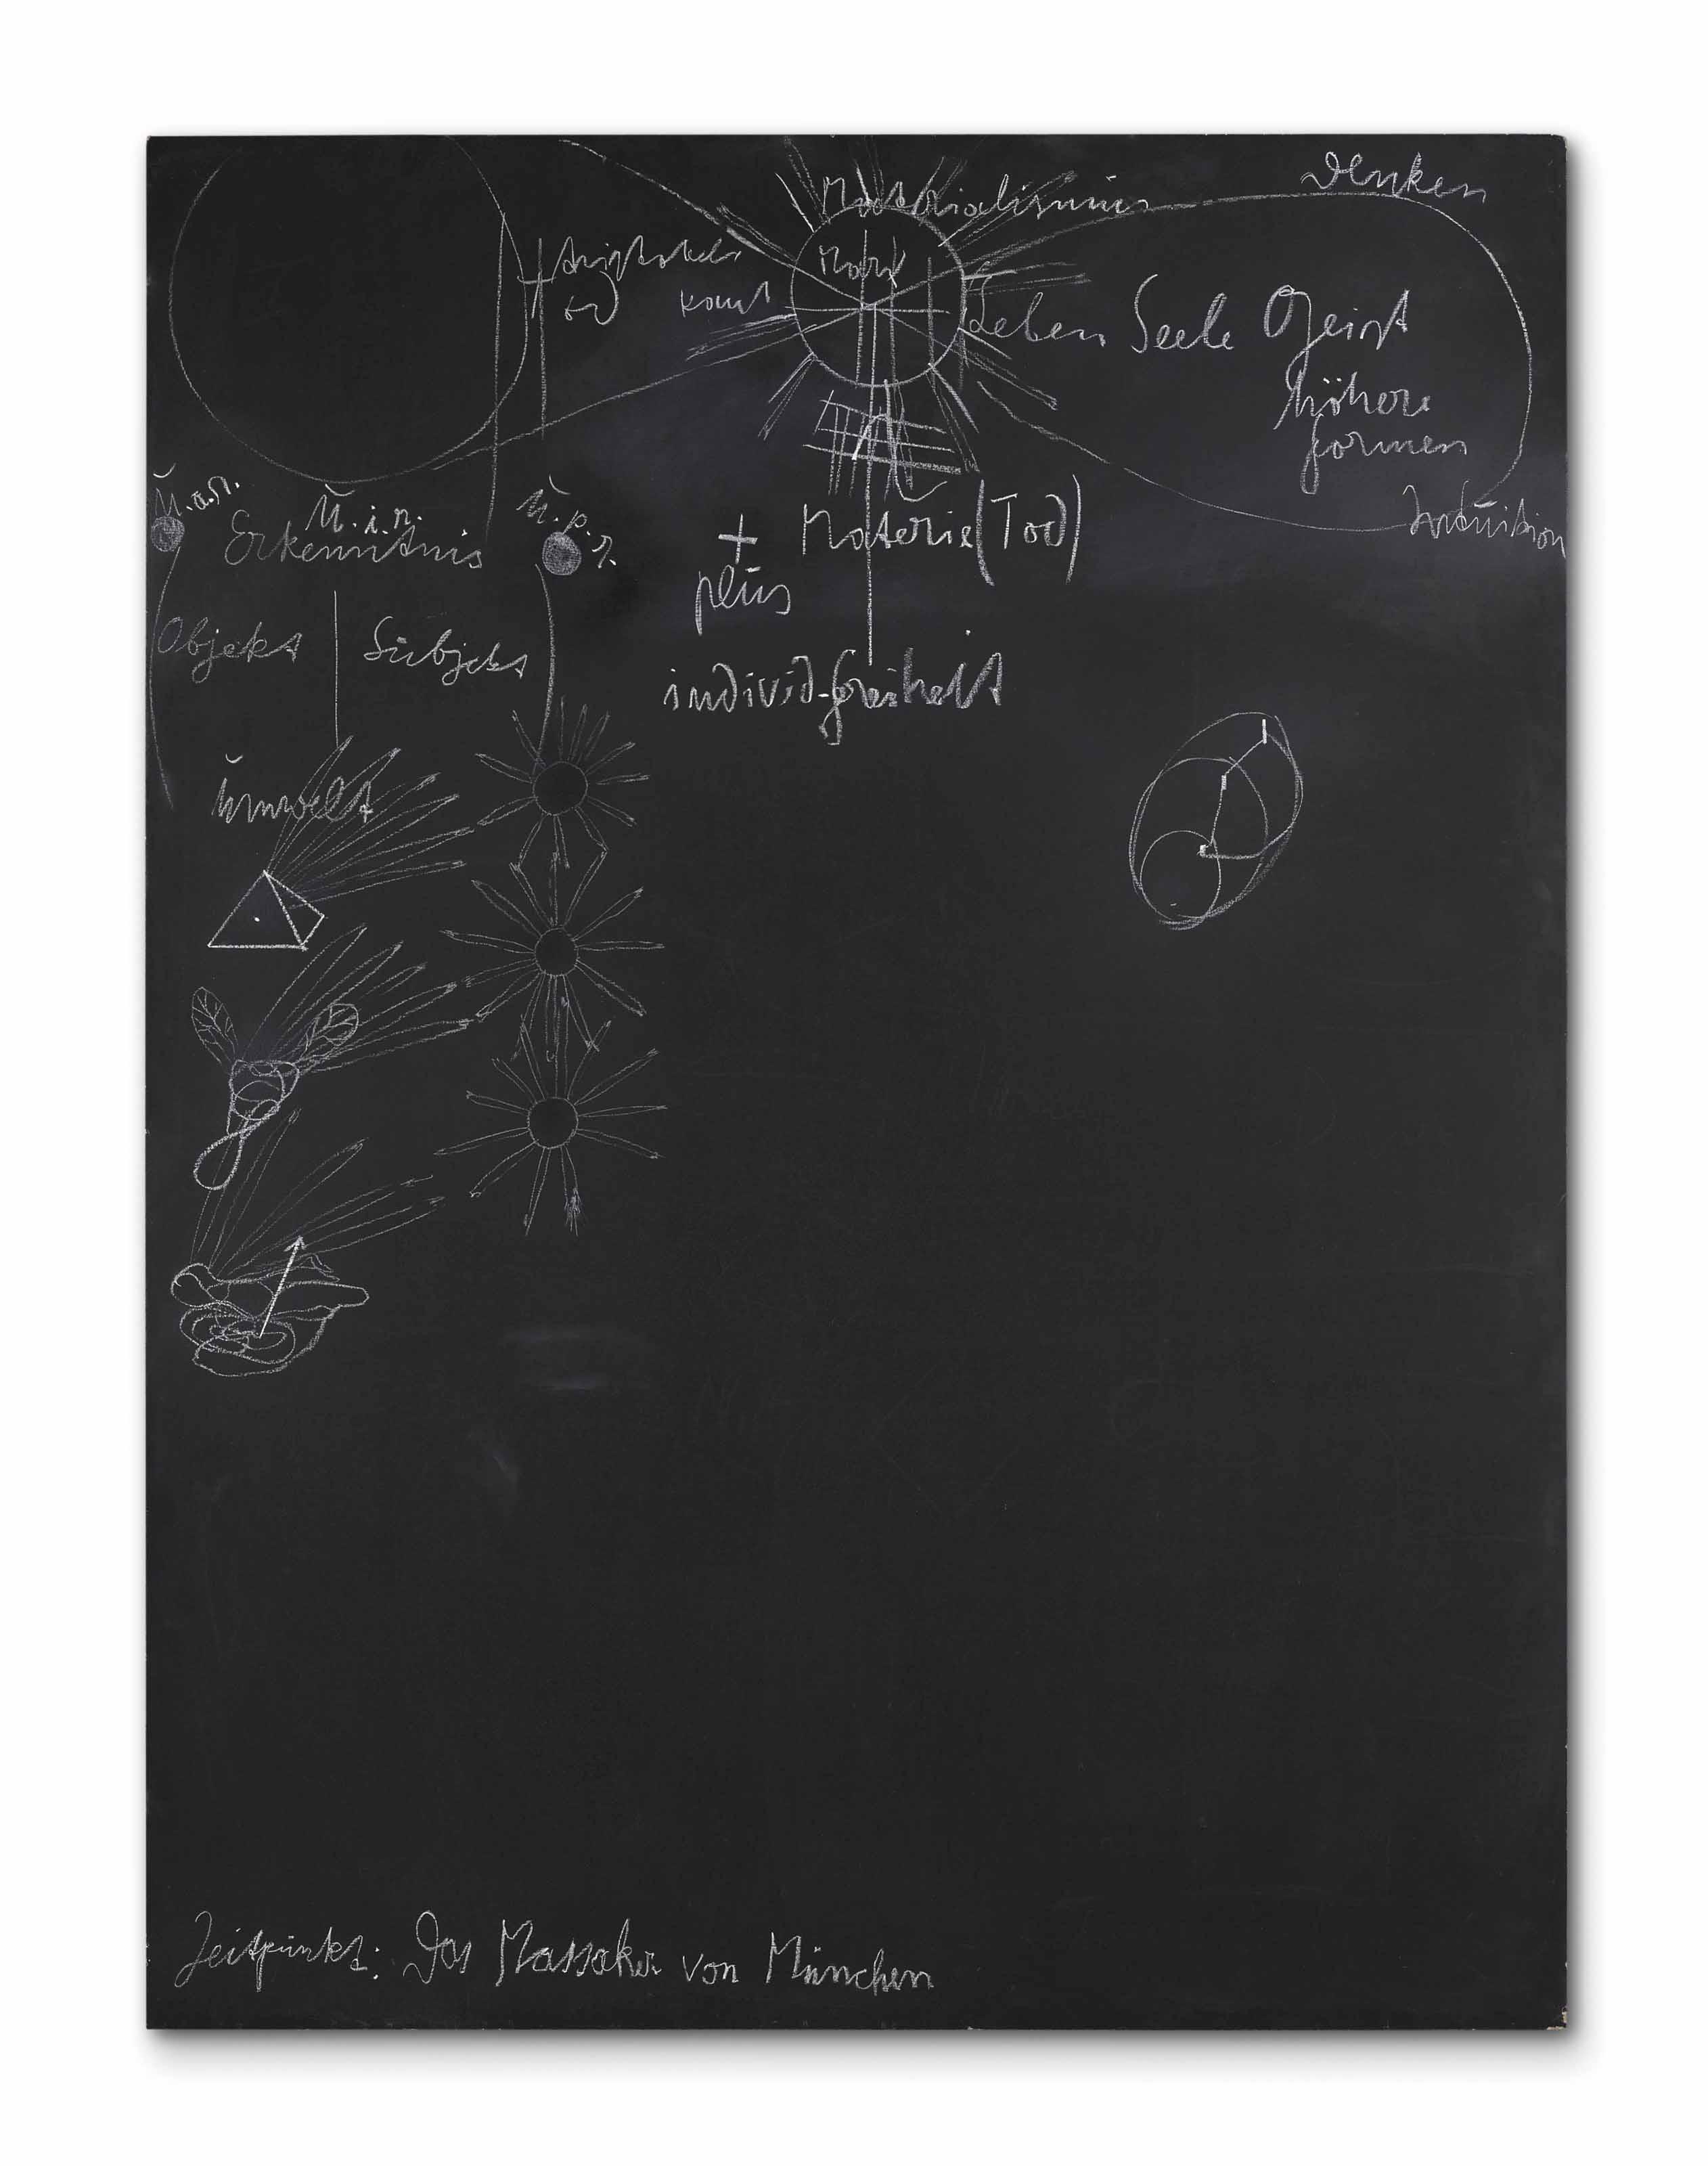 Denken
Materialismus
Aristoteles
Kant
Marx
Leben Seele Geist
höhere
formen
Intuition
U.a.n.
U.i.n.
U.p.n.
Erkenntnis
+ Materie (Tod)
plus
Objekt | Subjekt
individ-freiheit
Umwelt
Zeitpunkt: Das Massaker von München